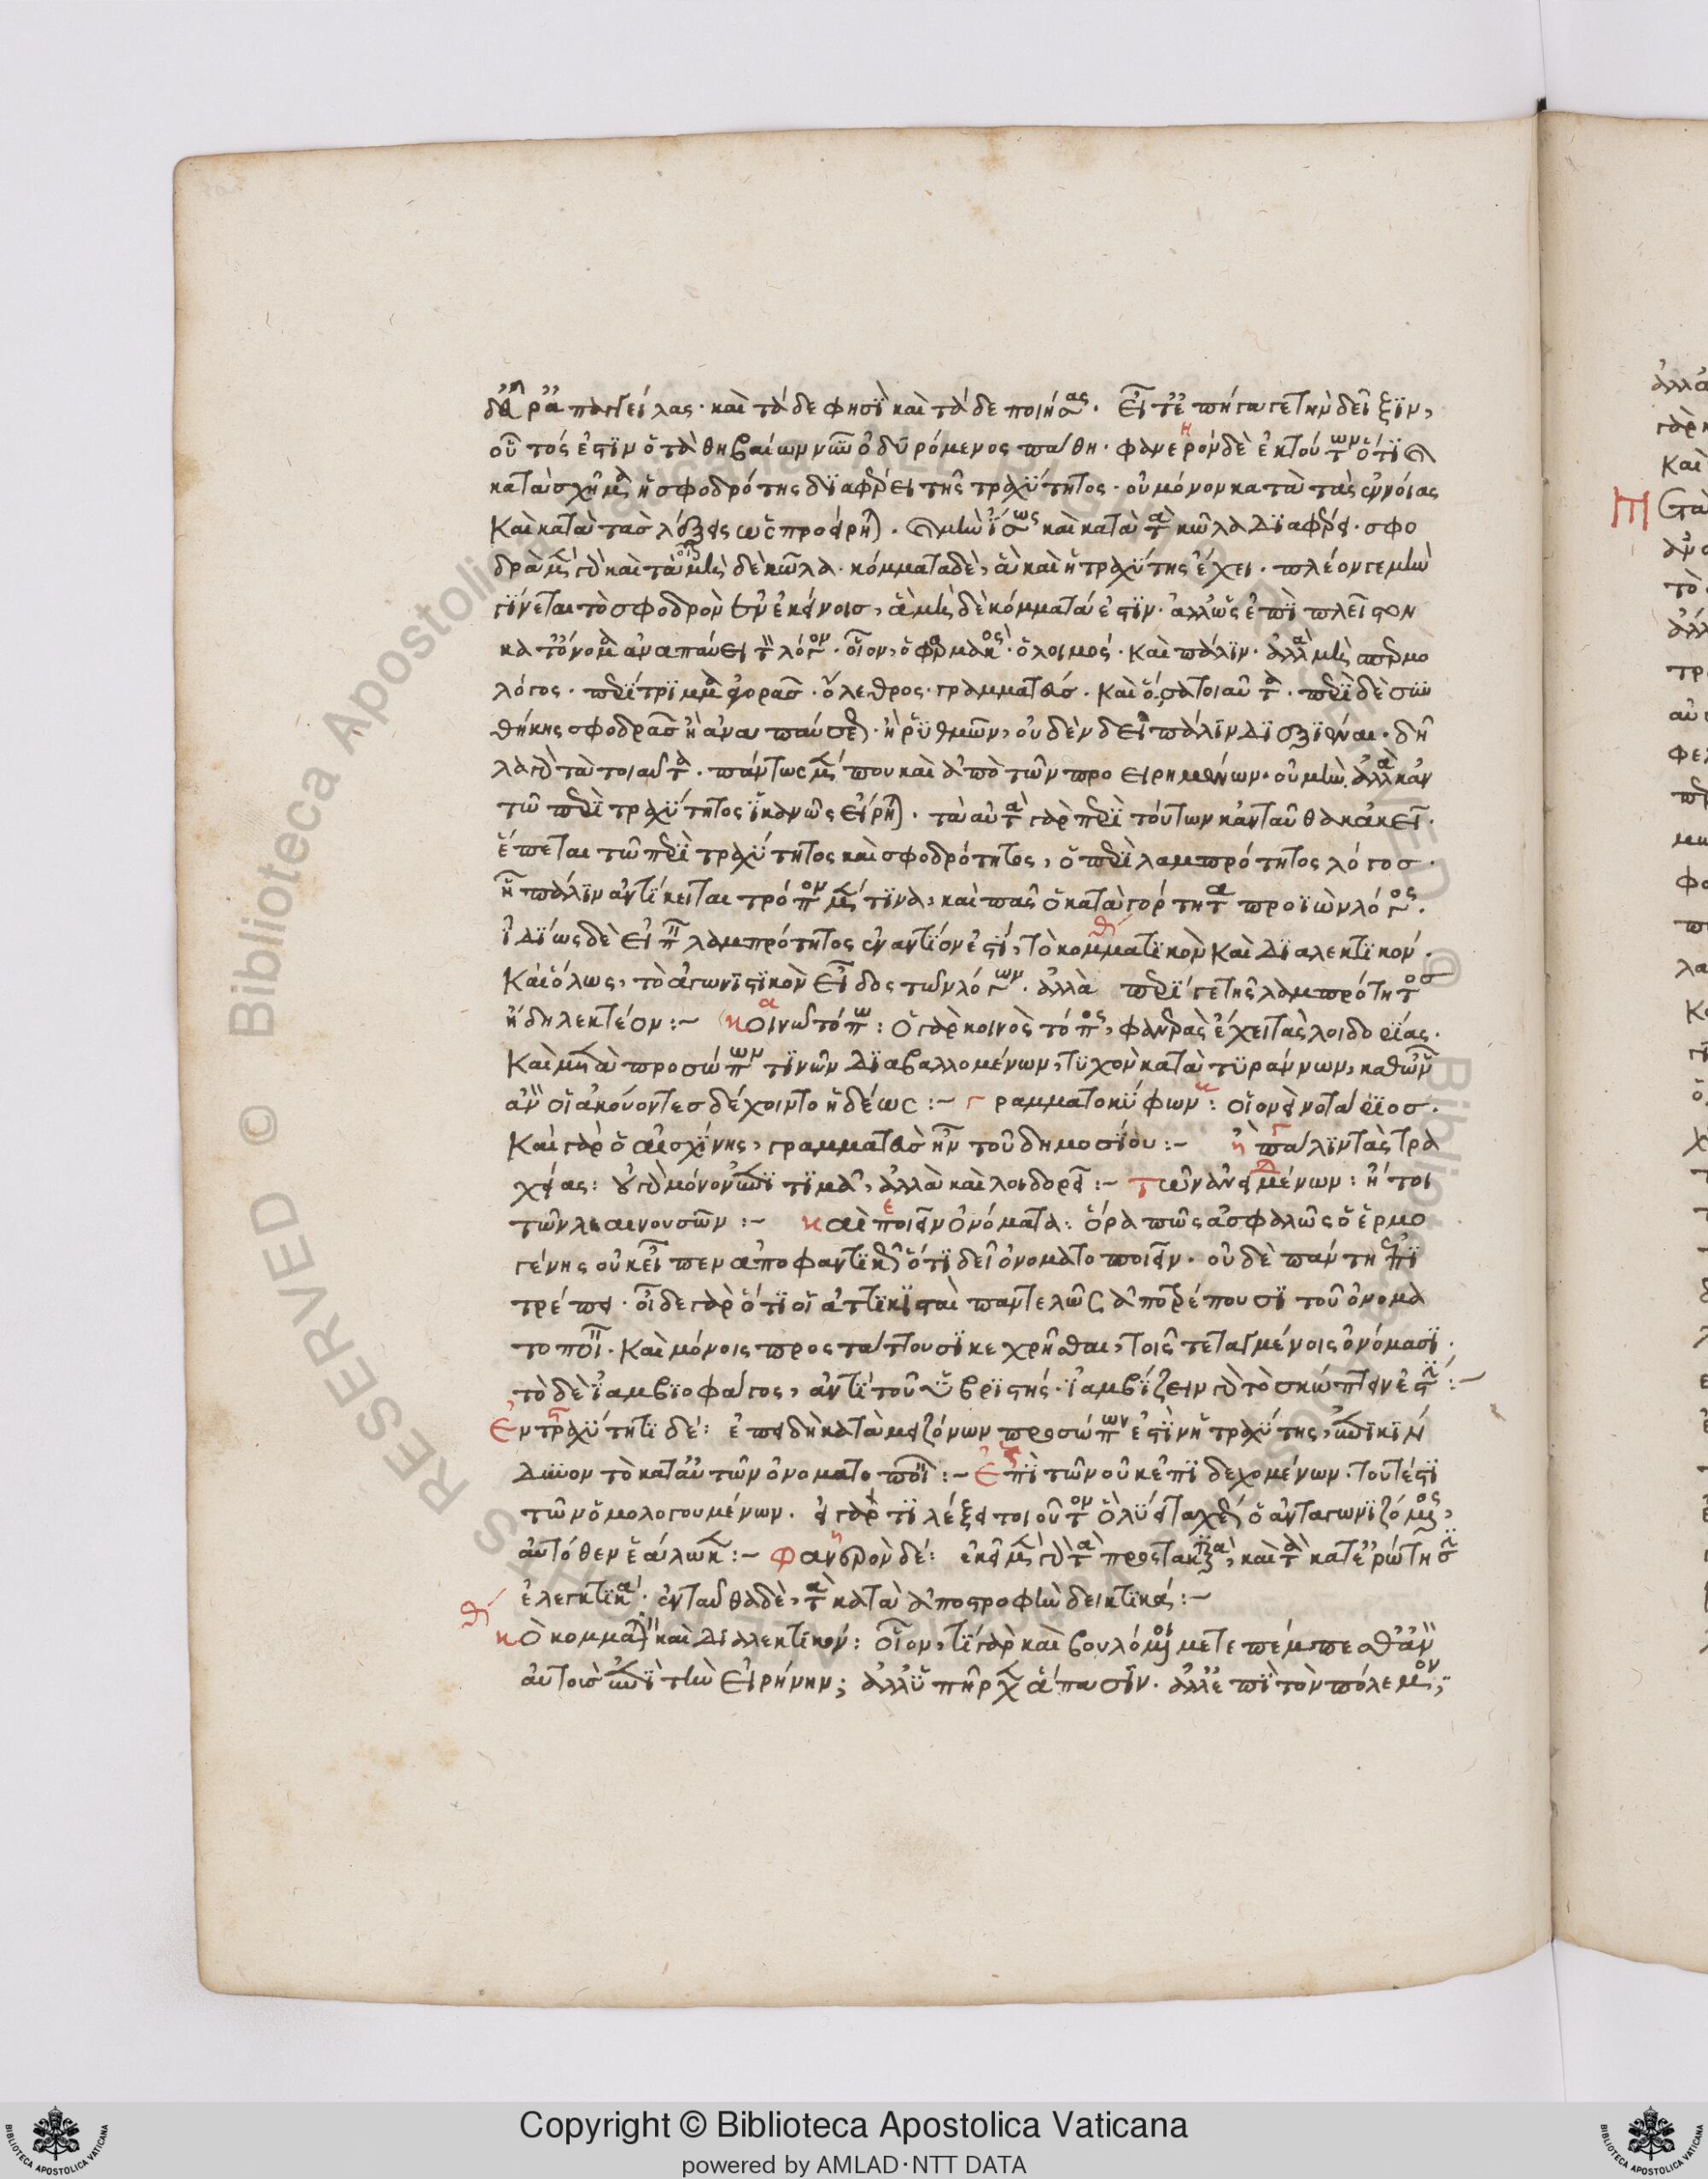 παγγείλας· καὶ τάδε φησὶ καὶ τάδε ποιήσας· εἶτ' ἐπήγαγε τὴν δεῖξιν,
οὗτός ἐστιν ὁ τὰ θηβαίων νῦν ὀδυρόμενος πάθη· φανερὸν δὲ ἐκ τούτων ὅτι
κατὰ σχῆμα ἡ σφοδρότης διαφέρει τῆς τραχύτητος· οὐ μόνον κατὰ τὰς ἐννοίας
καὶ κατὰ τὰς λέξεις ὡς προείρηται. καὶ κατὰ τὰ κῶλα διαφέρει· σφο
δρὰ κῶλα· κόμματα δὲ, ἃ καὶ ἡ τραχύτης ἔχει· πλέον γε μὴν
γίνεται τὸ σφοδρὸν ἐν ἐκείνοις, ἃ μὴ δὲ κόμματά ἐστιν· ἀλλ' ὡς ἐπὶ πλεῖστον
κατ' ὄνομα ἀναπαύει τὸν λόγον· οἷον, ὁ φαρμακός· ὁ λοιμός· καὶ πάλιν· ἀλλὰ σπερμο
λόγος· περίτριμμα ἀγορᾶς· ὄλεθρος γραμματεύς· καὶ ὅσα τοιαῦτα· περὶ δὲ συν
θήκης σφοδρᾶς ἢ ἀναπαύσεως· ἢ ῥυθμῶν, οὐδὲν δεῖ πάλιν διεξιέναι· δῆ
λα γὰρ τὰ τοιαῦτα· πάντως που καὶ ἀπὸ τῶν προειρημένων· οὐ μὴν ἀλλὰ κἀν
τῷ περὶ τραχύτητος ἱκανῶς εἴρηται· τὰ αὐτὰ γὰρ περὶ τούτων κἀνταῦθα κἀκεῖ·
ἕπεται τῷ περὶ τραχύτητος καὶ σφοδρότητος, ὁ περὶ λαμπρότητος λόγος·
ᾗ πάλιν ἀντίκειται τρόπον μέν τινα, καὶ πᾶς ὁ κατὰ γοργότητα προϊὼν λόγος·
ἰδίως δὲ ἐπὶ λαμπρότητος ἐναντίον ἐστί, τὸ κομματικὸν καὶ διαλεκτικόν·
καὶ ὅλως, τὸ ἀγωνιστικὸν εἶδος τῶν λόγων· ἀλλὰ περί γε τῆς λαμπρότητος
ἤδη λεκτέον :– κοινῷ τόπῳ: ὁ γὰρ κοινὸς τόπος, φανερὰς ἔχει τὰς λοιδορίας·
καὶ μετὰ προσώπων τινῶν διαβαλλομένων, τυχὸν κατὰ τυράννων, καθ' ὧν
ἂν οἱ ἀκούοντες δέχοιντο ἡδέως :– γραμματοκύφων: οἱονεὶ νοτάριος·
καὶ γὰρ ὁ αἰσχίνης, γραμματεὺς ἦν τοῦ δημοσίου :– ἢ πάλιν τὰς τρα
χείας: οὐ γὰρ μόνον ἐπιτιμᾷ, ἀλλὰ καὶ λοιδορεῖ :– τῶν ἀνειμένων: ἤτοι
τῶν λεαινουσῶν :– καὶ ποιεῖν ὀνόματα: ὅρα πῶς ἀσφαλῶς ὁ ἑρμο
γένης οὐκ εἶπεν ἀποφαντικῶς ὅτι δεῖ ὀνοματοποιεῖν· οὐδὲ πάντη ἐπι
τρέπει· οἶδε γὰρ ὅτι οἱ ἀττικισταὶ παντελῶς ἀποτρέπουσι τοῦ ὀνομα
τοποιεῖν· καὶ μόνοις προστάττουσι κεχρῆσθαι, τοῖς τεταγμένοις ὀνόμασι·
τὸ δὲ ἰαμβιοφάγος, ἀντὶ τοῦ ὑβριστής· ἰαμβίζειν γὰρ τὸ σκώπτειν ἐστί :–
ἐν τραχύτητι δέ: ἐπειδὴ κατὰ μειζόνων προσώπων ἐστὶν ἡ τραχύτης, ἐπικίν
δυνον τὸ κατ' αὐτῶν ὀνοματοποιεῖν :– ἐπὶ τῶν οὐκ ἐπιδεχομένων· τουτέστι
τῶν ὁμολογουμένων· εἰ γάρ τι λέξει τοιοῦτον ὃ λύει ταχέως ὁ ἀνταγωνιζόμενος,
αὐτόθεν ἑάλωκε :– φανερὸν δέ: ἐκεῖ μὲν γὰρ τὰ προστακτικά, καὶ τὰ κατ' ἐρώτησιν
ἐλεγκτικά· ἐνταῦθα δὲ, τὰ κατὰ ἀποστροφὴν δεικτικά :–
τὸ κομματικὸν καὶ διαλεκτικόν: οἷον, τί γὰρ καὶ βουλόμενοι μετεπέμπεσθ' ἂν
αὐτοὺς ἐπὶ τὴν εἰρήνην; ἀλλ' ὑπῆρχεν ἅπασιν· ἀλλ' ἐπὶ τὸν πόλεμον;
© Biblioteca Apostolica Vaticana
Copyright © Biblioteca Apostolica Vaticana
powered by AMLAD·NTT DATA